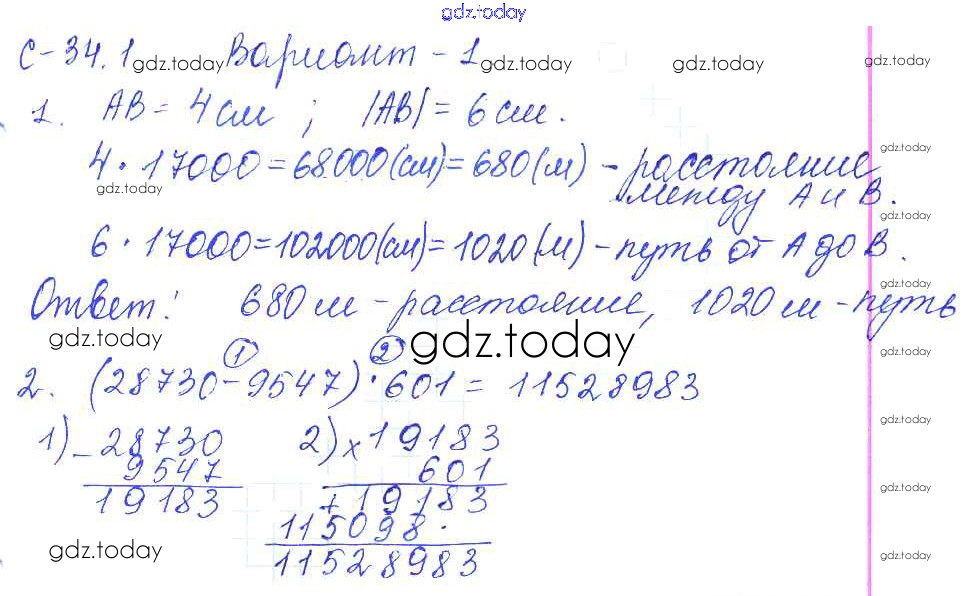 gdz.today
С-34.1 gdz.today Вариант-1 gdz.today gdz.today gdz.today
1. AB = 4 см ; |AB| = 6 см.
4 · 17000 = 68000 (см) = 680 (м) - расстояние gdz.today
gdz.today между А и В.
gdz.today
6 · 17000 = 102000 (см) = 1020 (м) - путь от А до В. gdz.today
gdz.today
Ответ: 680 м - расстояние, 1020 м - путь
gdz.today gdz.today gdz.today
1 2
2. (28730 - 9547) · 601 = 11528983
gdz.today
1) - 28730 2) × 19183
9547 601
gdz.today
19183 + 19183
115098 ·
gdz.today
11528983
gdz.today gdz.today